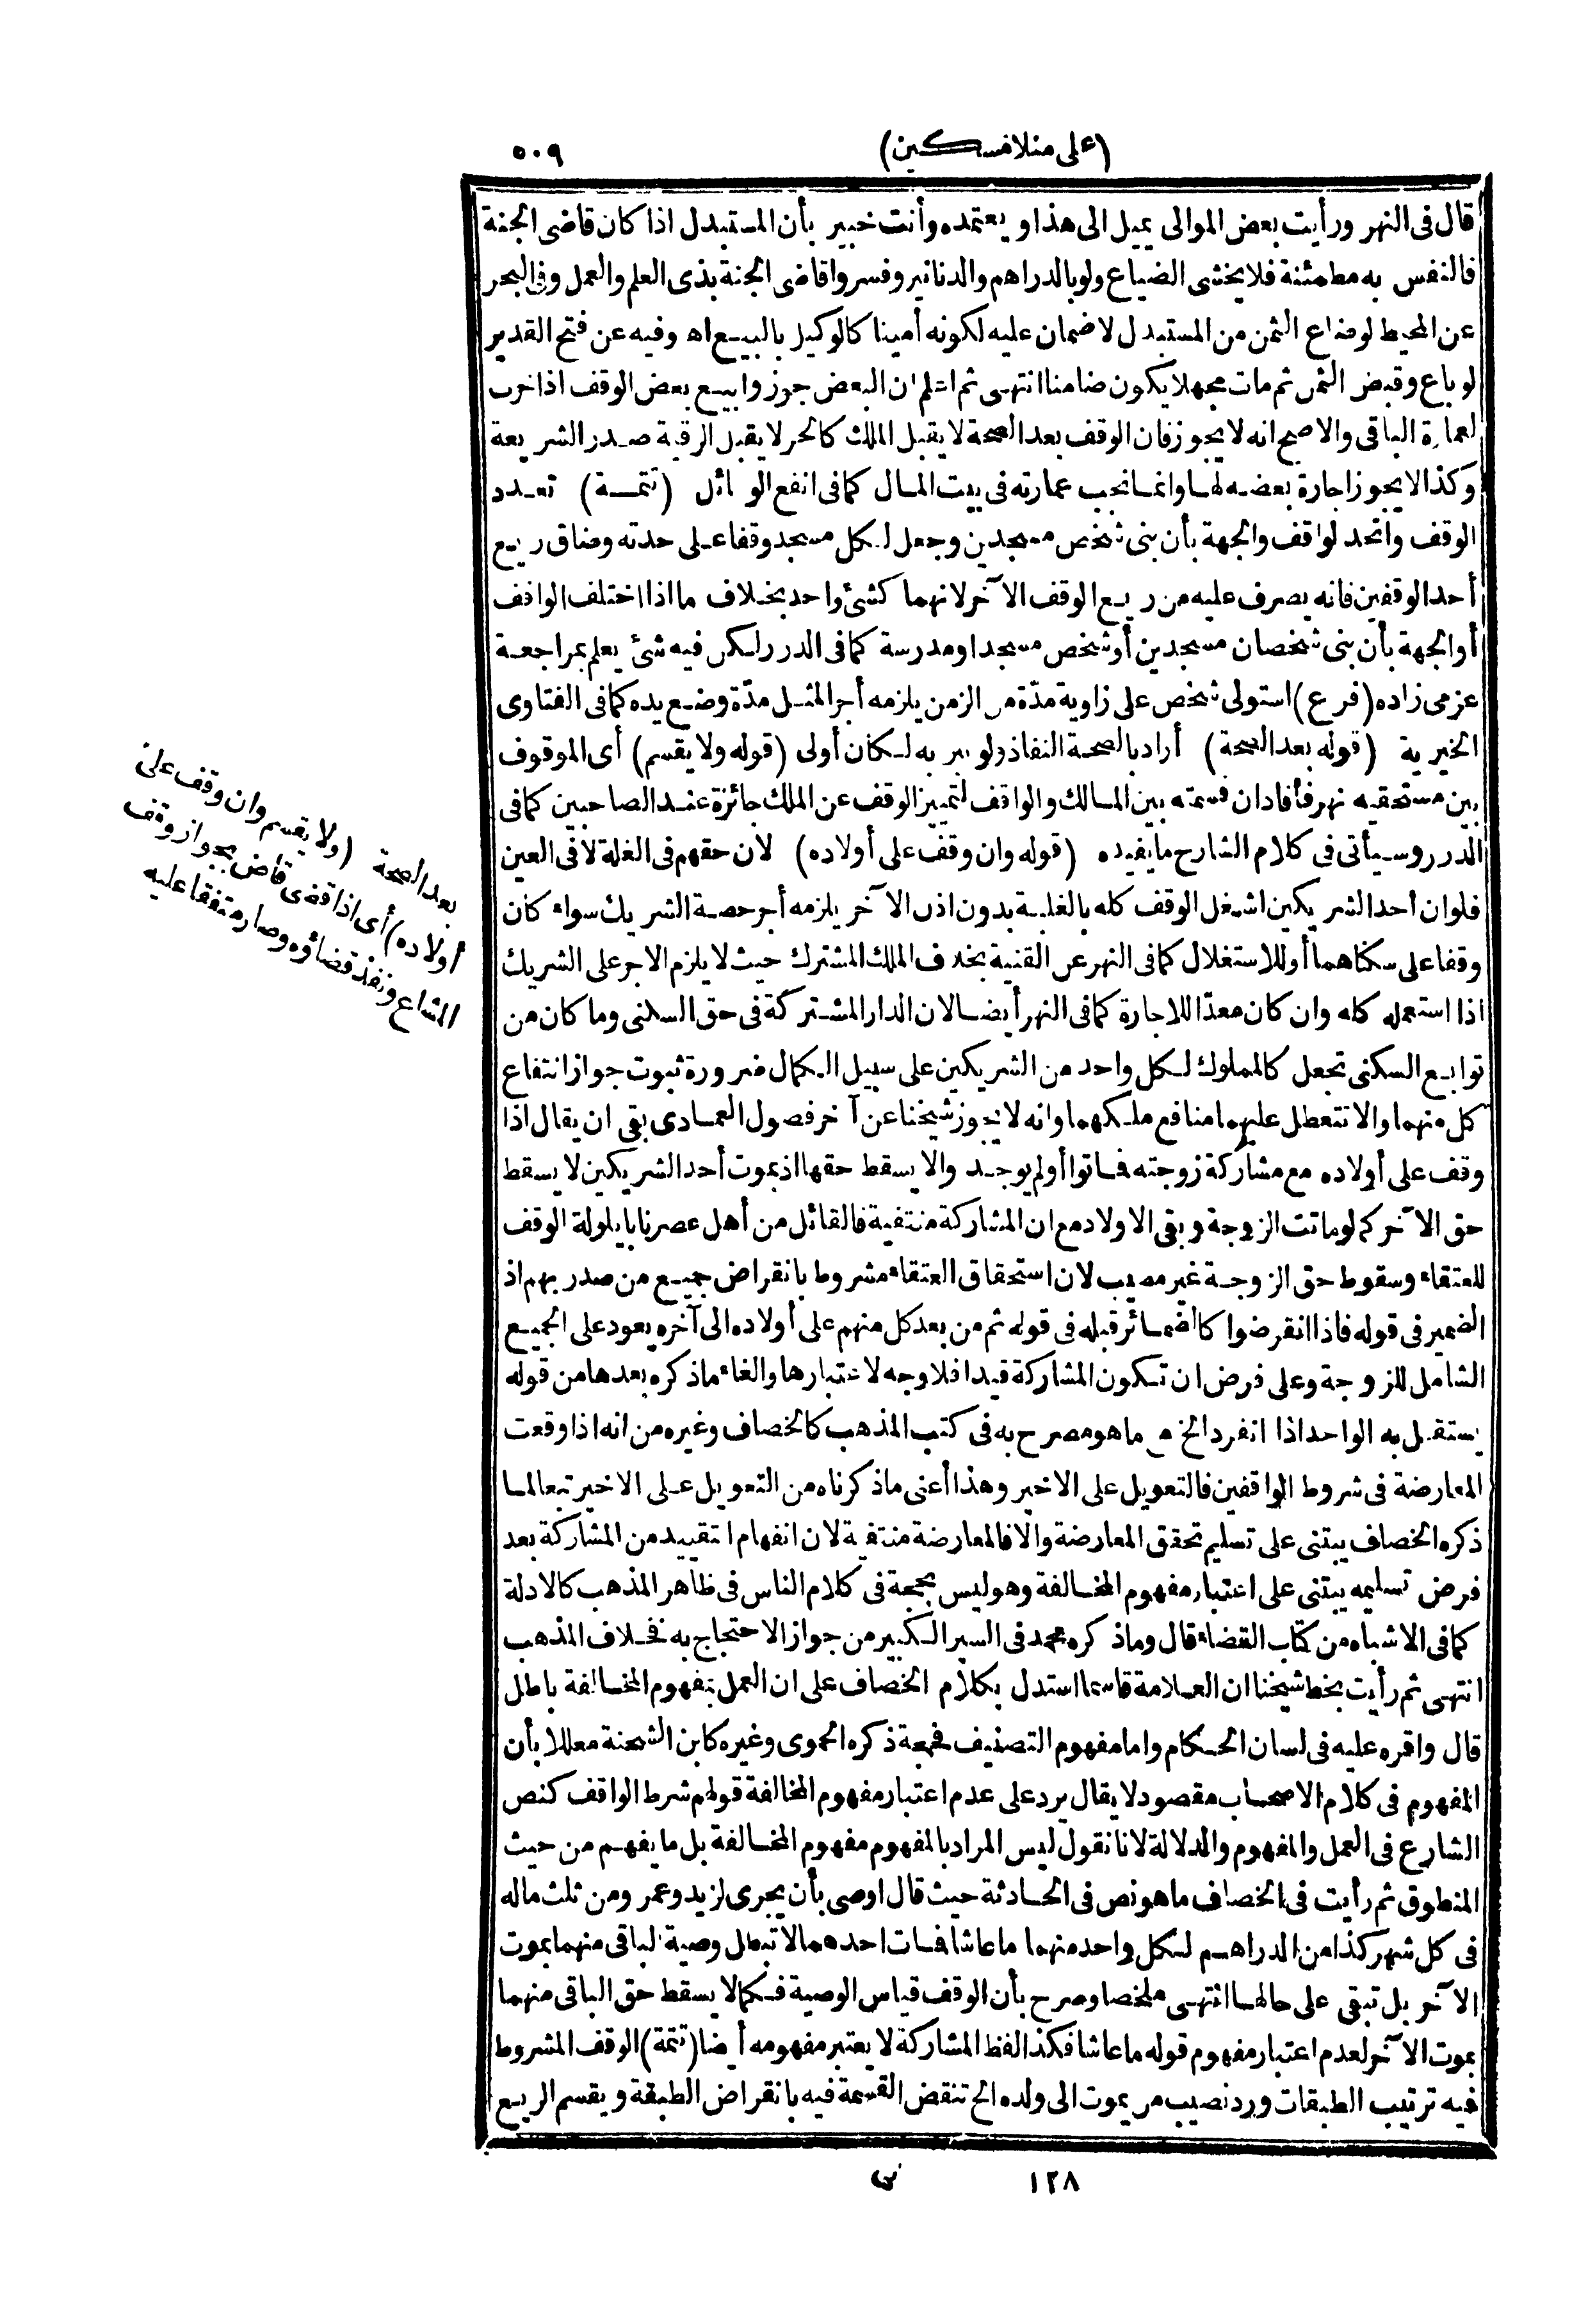 (على منلا مسكين) ٥٠٩
قال فى النهر ورأيت بعض الموالى يميل الى هذا ويعتمده وأنت خبير بأن المستبدل اذا كان قاضى الجنة
فالنفس به مطمئنة فلا يخشى الضياع ولو بالدراهم والدنانير وفسروا قاضى الجنة بذى العلم والعمل وفى البحر
عن المحيط لو ضاع الثمن من المستبدل لا ضمان عليه لكونه أمينا كالوكيل بالبيع اه وفيه عن فتح القدير
لو باع وقبض الثمن ثم مات مجهلا يكون ضامنا انتهى ثم اعلم ان البعض جوزوا بيع بعض الوقف اذا خرب
لعمارة الباقى والاصح انه لا يجوز فان الوقف بعد الصحة لا يقبل الملك كالحر لا يقبل الرقية صدر الشريعة
وكذا لا يجوز اجارة بعضه لها وانما تجب عمارته فى بيت المال كما فى انفع الوسائل (تتمة) تعدد
الوقف واتحد لواقف والجهة بأن بنى شخص مسجدين وجعل لكل مسجد وقفا على حدته وضاق ريع
أحد الوقفين فانه يصرف عليه من ريع الوقف الآخر لانهما كشئ واحد بخلاف ما اذا اختلف الواقف
أو الجهة بأن بنى شخصان مسجدين أو شخص مسجدا ومدرسة كما فى الدرر لكن فيه شئ يعلم بمراجعة
عزمى زاده (فرع) استولى شخص على زاوية مدّة من الزمن يلزمه أجر المثل مدّة وضع يده كما فى الفتاوى
الخيرية (قوله بعد الصحة) أراد بالصحة النفاذ ولو عبر به لكان أولى (قوله ولا يقسم) أى الموقوف
بين مستحقيه نهر فأفاد ان قسمته بين المالك والواقف لتمييز الوقف عن الملك جائزة عند الصاحبين كما فى
الدرر وسيأتى فى كلام الشارح ما يفيده (قوله وان وقف على أولاده) لان حقهم فى الغلة لا فى العين
فلو ان أحد الشريكين اشتغل الوقف كله بالغلبة بدون اذن الآخر يلزمه أجر حصة الشريك سواء كان
وقفا على سكناهما أو للاستغلال كما فى النهر عن القنية بخلاف الملك المشترك حيث لا يلزم الاجر على الشريك
اذا استعمله كله وان كان معدّا للاجارة كما فى النهر أيضا لان الدار المشتركة فى حق السكنى وما كان من
توابع السكنى تجعل كالمملوك لكل واحد من الشريكين على سبيل الكمال ضرورة ثبوت جواز انتفاع
كل منهما والا تتعطل عليهما منافع ملكهما وانه لا يجوز شيخنا عن آخر فصول العمادى بقى ان يقال اذا
وقف على أولاده مع مشاركة زوجته فماتوا أو لم يوجد والا يسقط حقها اذ بموت أحد الشريكين لا يسقط
حق الآخر كما لو ماتت الزوجة وبقى الاولاد مع ان المشاركة منتفية فالقائل من أهل عصرنا بايلولة الوقف
للعتقاء وسقوط حق الزوجة غير مصيب لان استحقاق العتقاء مشروط بانقراض جميع من صدر بهم اذ
الضمير فى قوله فاذا انقرضوا كالضمائر قبله فى قوله ثم من بعد كل منهم على أولاده الى آخره يعود على الجميع
الشامل للزوجة وعلى فرض ان تكون المشاركة قيدا فلا وجه لاعتبارها والغاء ماذكره بعدها من قوله
يستقل به الواحد اذا انفرد الخ مع ما هو مصرح به فى كتب المذهب كالخصاف وغيره من انه اذا وقعت
المعارضة فى شروط الواقفين فالتعويل على الاخير وهذا أعنى ماذكرناه من التعويل على الاخير تبعا لما
ذكره الخصاف يبتنى على تسليم تحقق المعارضة والا فالمعارضة منتفية لان انفهام التقييد من المشاركة بعد
فرض تسليمه يبتنى على اعتبار مفهوم المخالفة وهو ليس بحجة فى كلام الناس فى ظاهر المذهب كالادلة
كما فى الاشباه من كتاب القضاء قال وماذكره محمد فى السير الكبير من جواز الاحتجاج به فخلاف المذهب
انتهى ثم رأيت بخط شيخنا ان العلامة قاسما استدل بكلام الخصاف على ان العمل بمفهوم المخالفة باطل
قال واقره عليه فى لسان الحكام واما مفهوم التصنيف فحجة ذكره الحموى وغيره كابن الشحنة معللا بأن
المفهوم فى كلام الاصحاب مقصود لا يقال يرد على عدم اعتبار مفهوم المخالفة قولهم شرط الواقف كنص
الشارع فى العمل والمفهوم والدلالة لانا نقول ليس المراد بالمفهوم مفهوم المخالفة بل ما يفهم من حيث
المنطوق ثم رأيت فى الخصاف ما هو نص فى الحادثة حيث قال اوصى بأن يجرى لزيد وعمرو من ثلث ماله
فى كل شهر كذا من الدراهم لكل واحد منهما ما عاشا فمات احدهما لا تبطل وصية الباقى منهما بموت
الآخر بل تبقى على حالها انتهى ملخصا وصرح بأن الوقف قياس الوصية فكما لا يسقط حق الباقى منهما
بموت الآخر لعدم اعتبار مفهوم قوله ما عاشا فكذا لفظ المشاركة لا يعتبر مفهومه أيضا (تتمة) الوقف المشروط
فيه ترتيب الطبقات ورد نصيب من يموت الى ولده الخ تنقض القسمة فيه بانقراض الطبقة ويقسم الريع
بعد الصحة (ولا يقسم وان وقف على
أولاده) أى اذا قضى قاض بجواز وقف
المشاع ونفذ قضاؤه وصار متفقا عليه
١٢٨ س